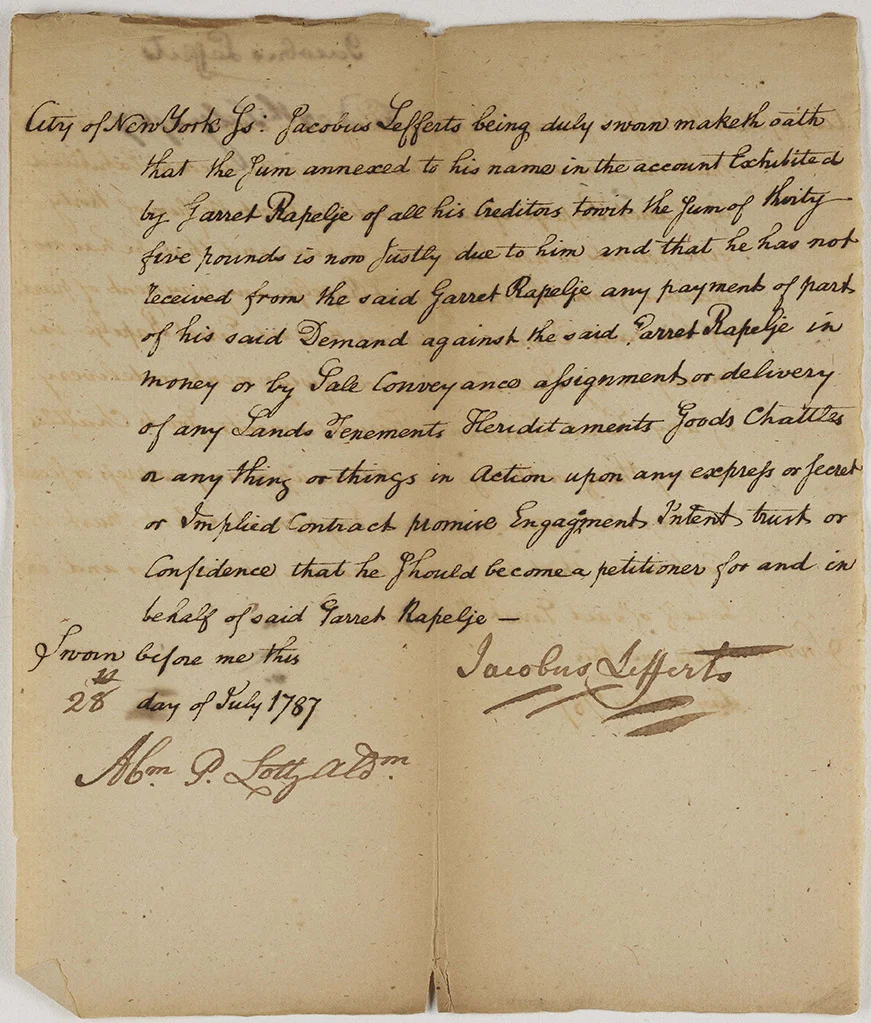 City of New York Ss: Jacobus Lefferts being duly sworn maketh oath
that the Sum annexed to his name in the account Exhibited
by Garret Rapelje of all his Creditors towit the Sum of thirty
five pounds is now Justly due to him and that he has not
received from the said Garret Rapelje any payment of part
of his said Demand against the said Garret Rapelje in
money or by Sale Conveyance assignment or delivery
of any Lands Tenements Heriditaments Goods Chattles
or any thing or things in Action upon any express or secret
or Implied Contract promise Engagment Intent trust or
Confidence that he Should become a petitioner for and in
behalf of said Garret Rapelje —
Sworn before me this
28 day of July 1787
Jacobus Lefferts
Abm P. Lott Aldm